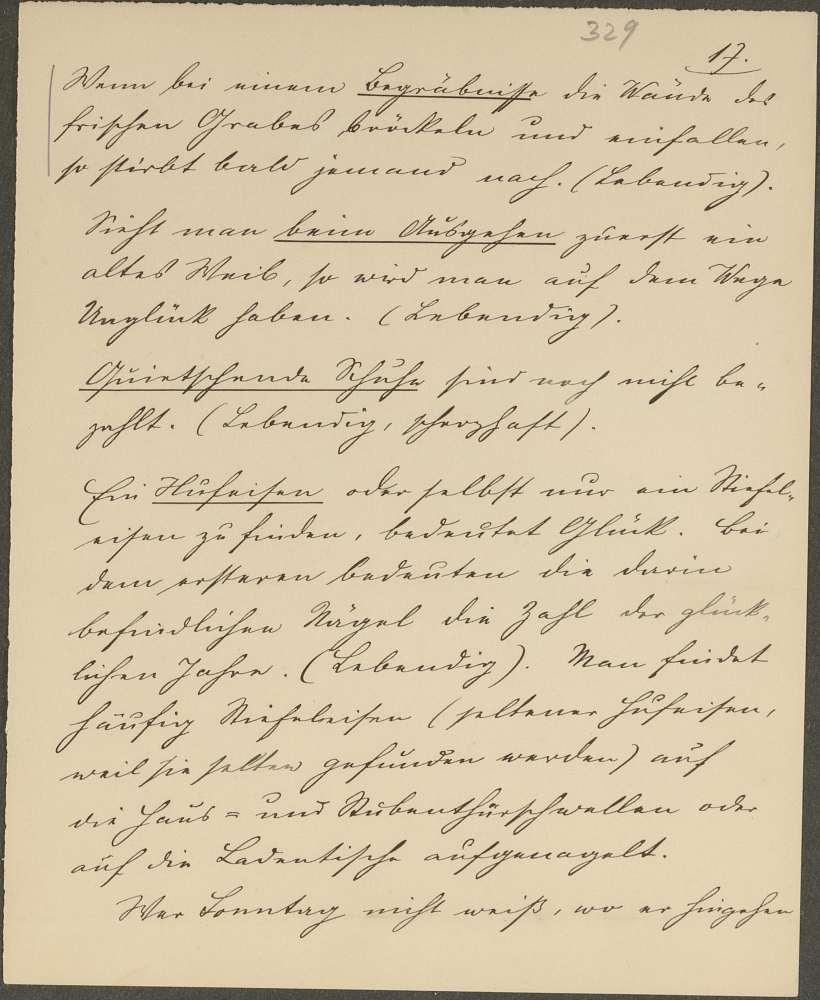 329
17.
Wenn bei einem Begräbnisse die Wände des
frischen Grabes bröckeln und einfallen,
so stirbt bald jemand nach. (Lebendig).
Sieht man beim Ausgehen zuerst ein
altes Weib, so wird man auf dem Wege
Unglück haben. (Lebendig).
Quietschende Schuhe sind noch nicht be-
zahlt. (Lebendig, scherzhaft).
Ein Hufeisen oder selbst nur ein Stiefel-
eisen zu finden, bedeutet Glück. Bei
dem ersteren bedeuten die darin
befindlichen Nägel die Zahl der glück-
lichen Jahre. (Lebendig). Man findet
häufig Stiefeleisen (seltener Hufeisen,
weil sie selten gefunden werden) auf
die Haus- und Stubenthürschwellen oder
auf die Ladentische aufgenagelt.
Wer Sonntag nicht weiß, wo er hingehen